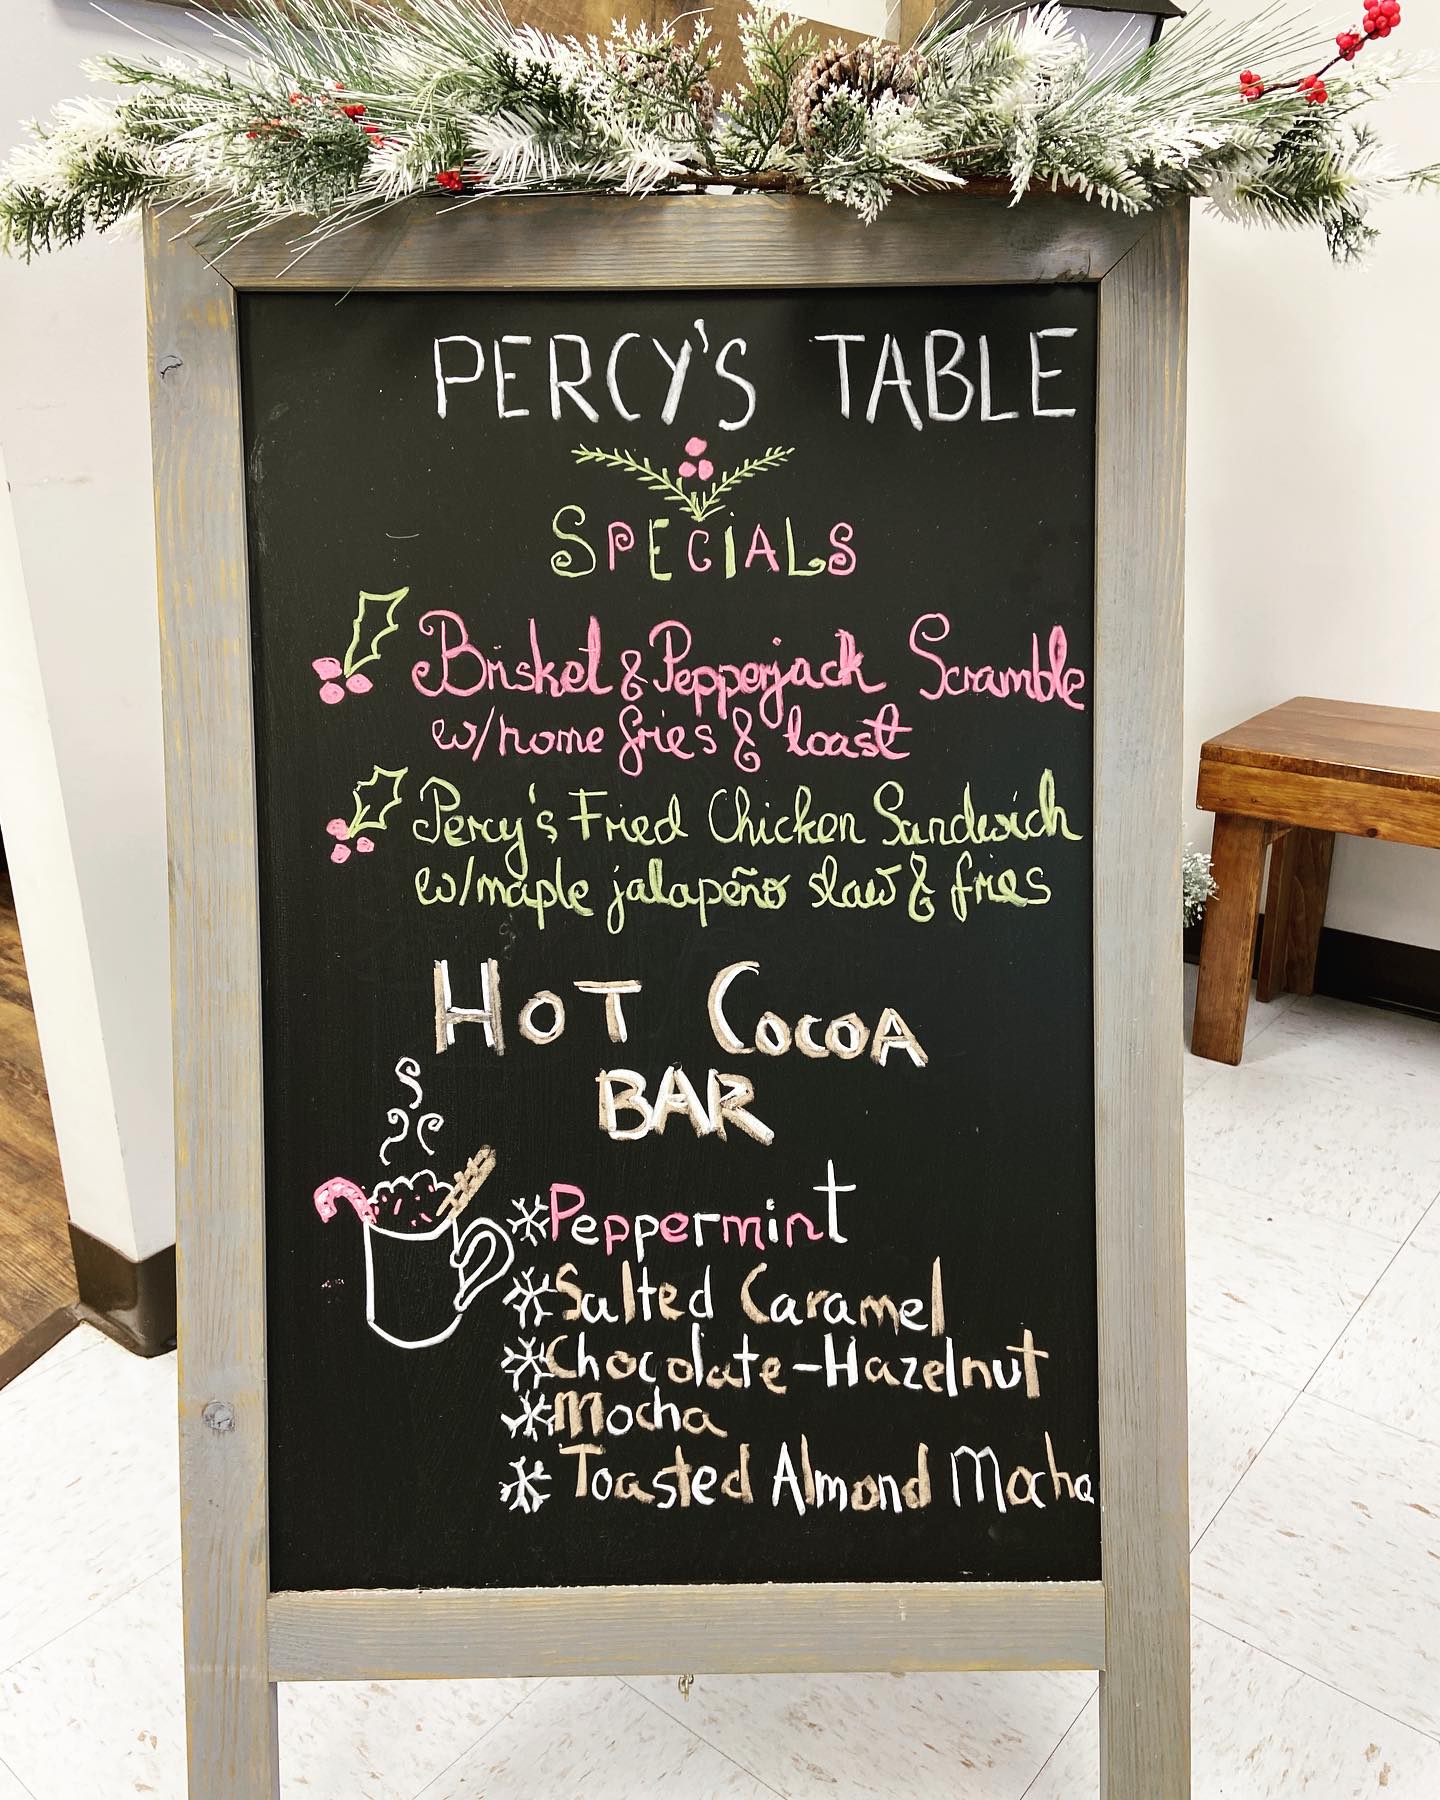 PERCY'S TABLE
SPECIALS
Brisket & Pepperjack Scramble
w/home fries & toast
Percy's Fried Chicken Sandwich
w/maple jalapeño slaw & fries
HOT COCOA
BAR
Peppermint
Salted Caramel
Chocolate-Hazelnut
Mocha
Toasted Almond Mocha